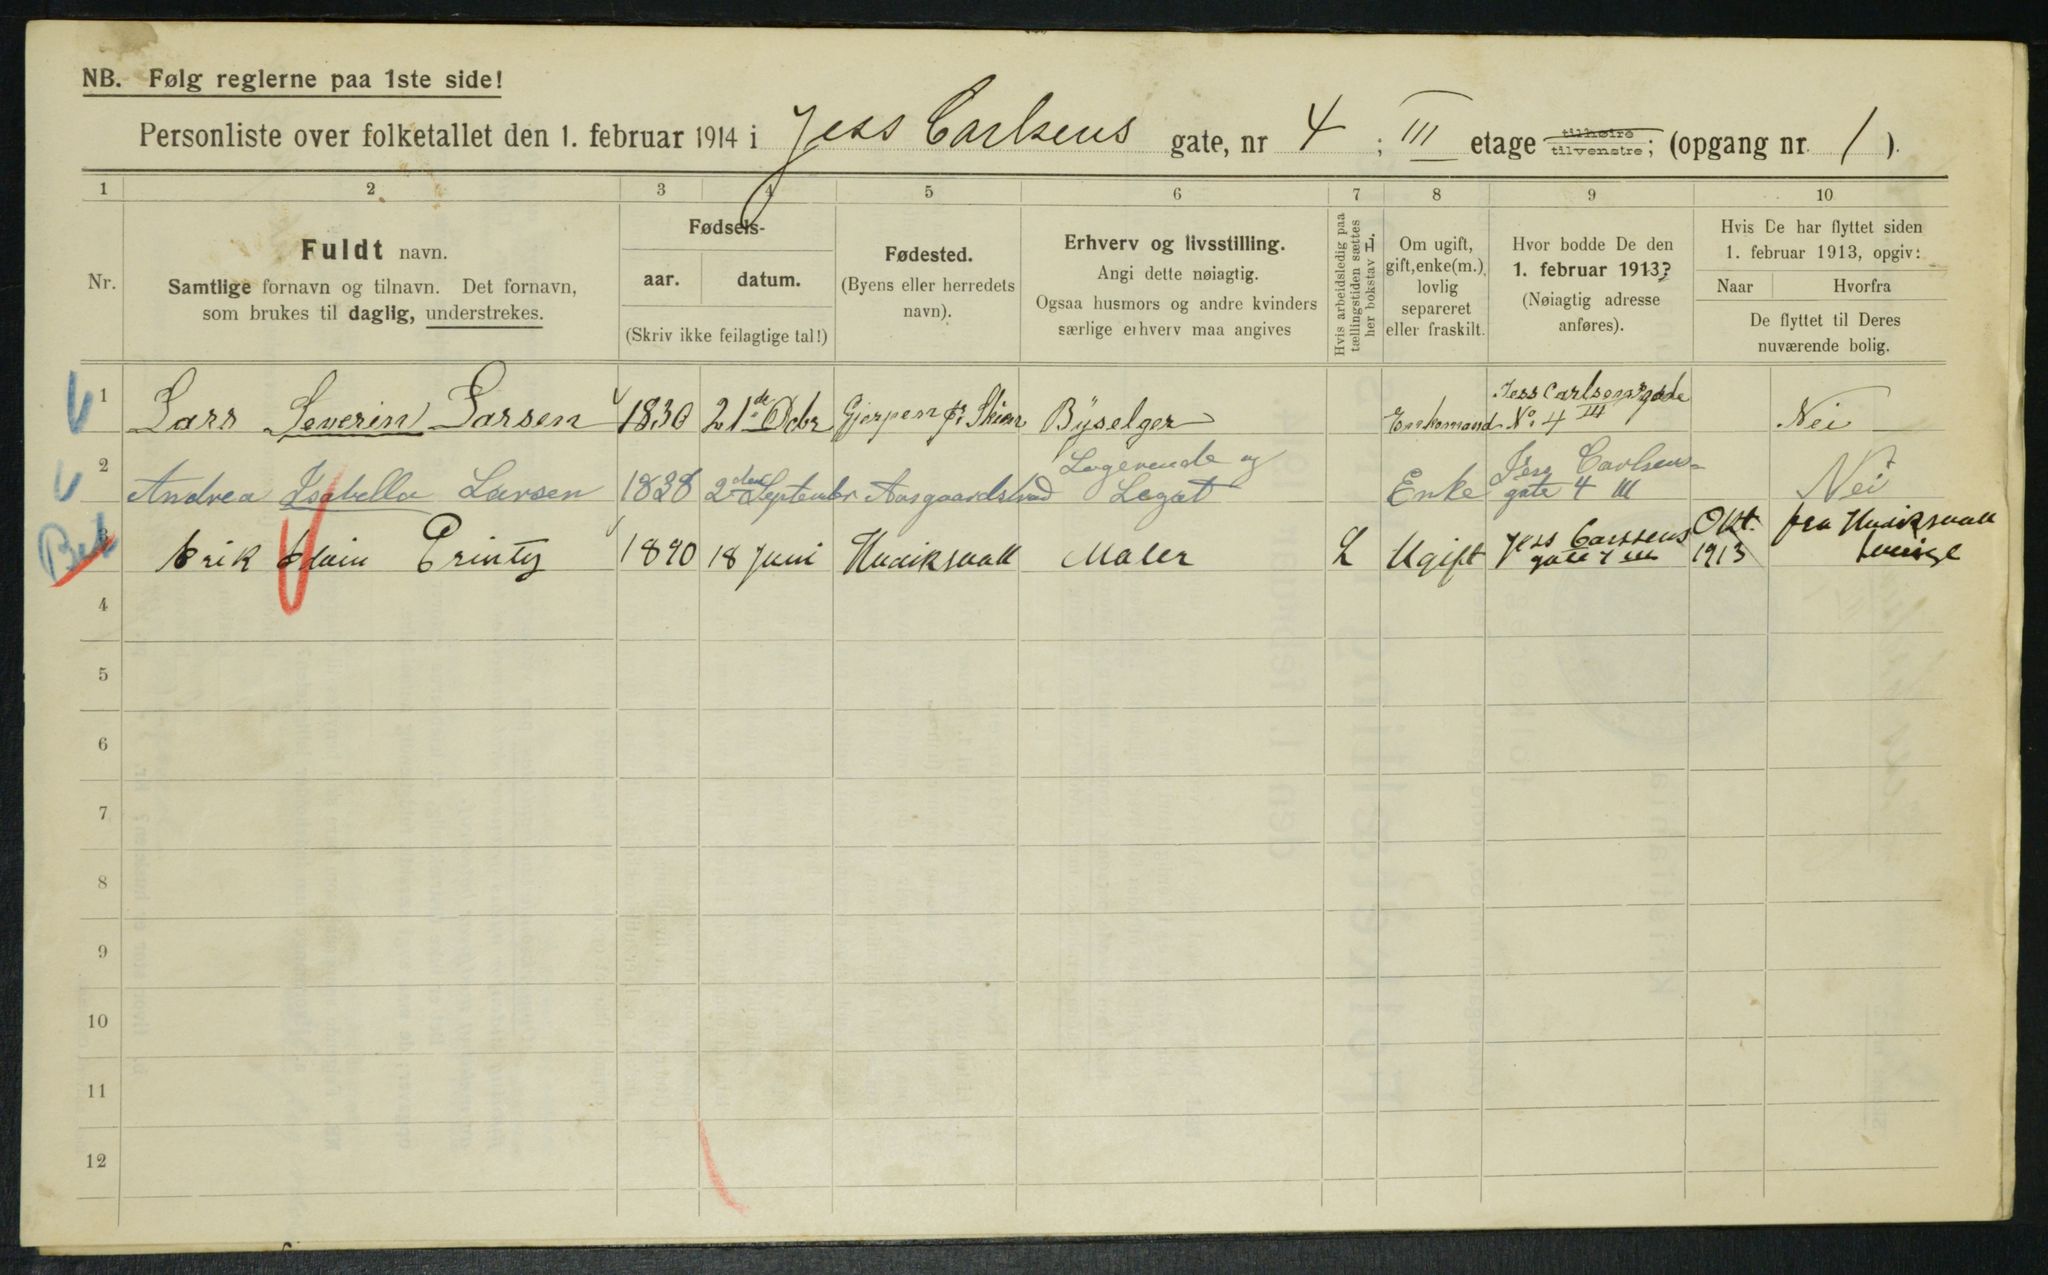 NB. Følg reglerne paa 1ste side!
Personliste over folketallet den 1. februar 1914 i Jess Carlsens gate, nr 4 ; III etage tilhøire tilvenstre; (opgang nr. 1 ).
1 2 3 4 5 6 7 8 9 10
Nr.
Fuldt navn.
Samtlige fornavn og tilnavn. Det fornavn,
som brukes til daglig, understrekes.
Fødsels-
aar. datum.
(Skriv ikke feilagtige tal!)
Fødested.
(Byens eller herredets
navn).
Erhverv og livsstilling.
Angi dette nøiagtig.
Ogsaa husmors og andre kvinders
særlige erhverv maa angives
Hvis arbeidsledig paa
tællingstiden sættes
her bokstav L.
Om ugift,
gift, enke(m.),
lovlig
separeret
eller fraskilt.
Hvor bodde De den
1. februar 1913?
(Nøiagtig adresse
anføres).
Hvis De har flyttet siden
1. februar 1913, opgiv:
Naar Hvorfra
De flyttet til Deres
nuværende bolig.
1 Lars Severin Larsen 1830 21de Octbr Gjerpen pr Skien Byselger Enkemand Jess Carlsens gade No 4 III Nei
2 Andrea Isabella Larsen 1828 2den September Aasgaardstrand Logerende og Legat Enke Jess Carlsens gate 4 III Nei
3 Erik Printz 1890 18 Juni Hudiksvall Maler L Ugift Jess Carlsens gate 4 III Okt. 1913 fra Hudiksvall Sverige
4
5
6
7
8
9
10
11
12